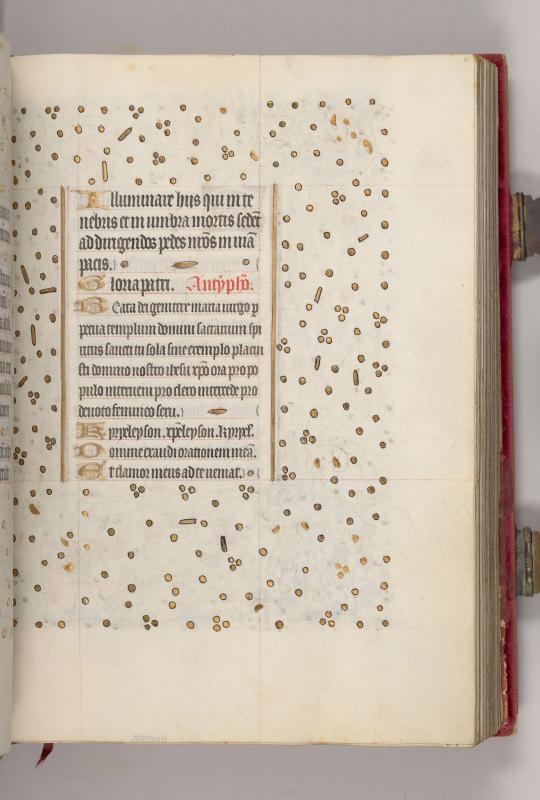 Illuminare hijs qui in te
nebris et in umbra mortis sedēt
ad dirigendos pedes nr̄os in uiā
pacis.
Gloria patri. Antyphō.
Beata dei genitrix maria uirgo p
petua templum domini sacrarium spi
ritus sancti tu sola sine exemplo placui
sti domino nostro ihesu xp̄o ora pro po
pulo interueni pro clero intercede pro
deuoto femineo sexu.
Kyryeleyson. xp̄eleyson. Kyryel.
Domine exaudi orationem meā.
Et clamor meus ad te ueniat.